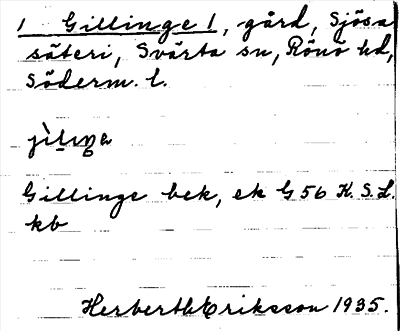 1 Gillinge 1, gård, Sjösa
säteri, Svärta sn, Rönö hd,
Söderm. l.
Gillinge bek, ek G 56 K. S. L.
kb
Herberth Eriksson 1935.